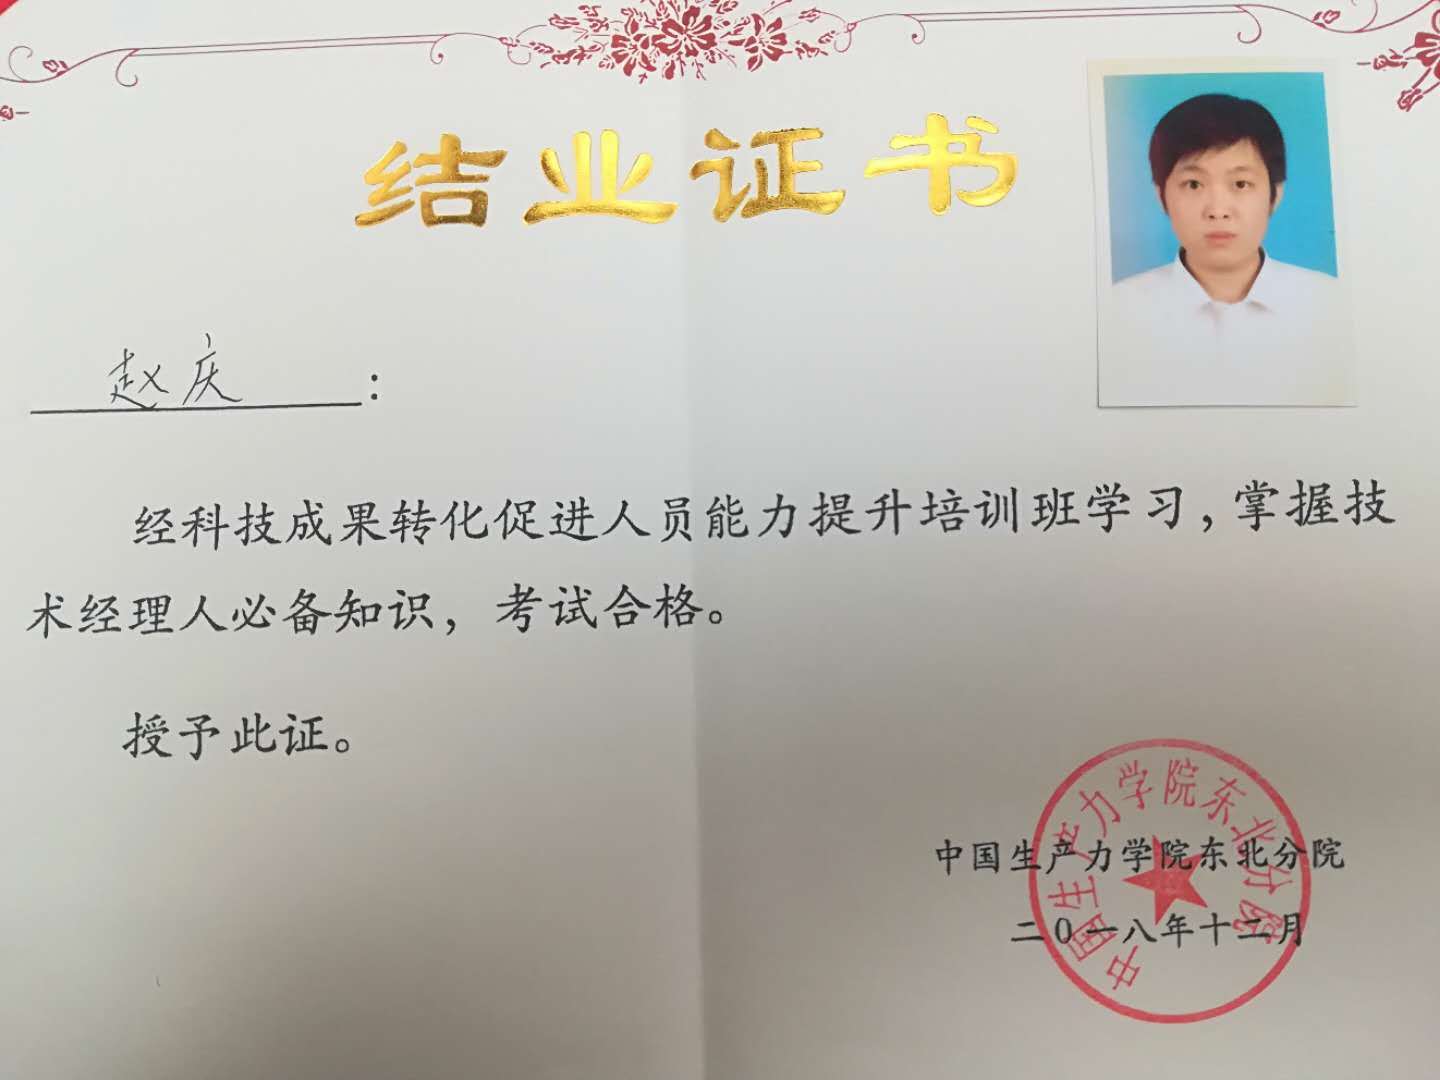 结业证书
赵庆：
经科技成果转化促进人员能力提升培训班学习，掌握技
术经理人必备知识，考试合格。
授予此证。
中国生产力学院东北分院
二〇一八年十二月
中国生产力学院东北分院